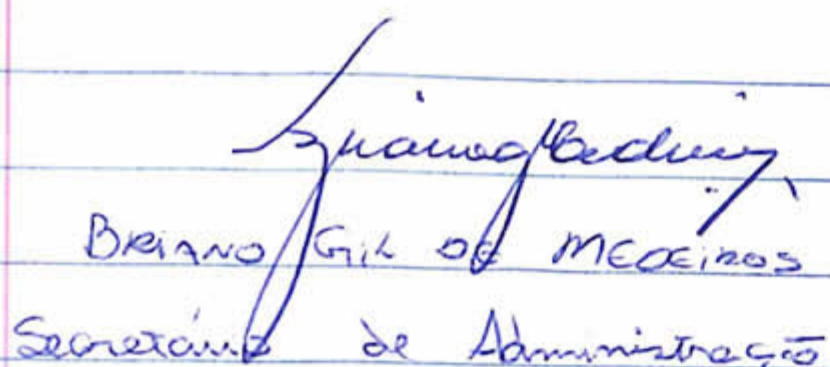 Briano Gil de Medeiros
Secretário de Administração